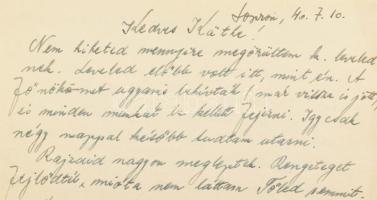 Sopron, 40. 7. 10.
Kedves Kätle!
Nem hiheted mennyire megörültem k. leveled
nek. Leveled előbb volt itt, mint én. A
főnökömet ugyanis behívták (már vissza is jött)
és minden munkát be kellett fejezni. Így csak
négy nappal később tudtam utazni.
Rajzaid nagyon megleptek. Rengeteget
fejlődtél, mióta nem láttam Tőled semmit.